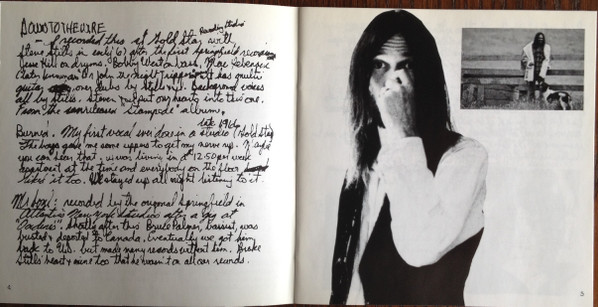 DOWN TO THE WIRE
Recording Studio
- I recorded this at Gold Star with
Steve Stills in early 67 after the first Springfield recording
Jesse Hill on drums, Bobby West on bass, Mac Rebenack
on John the Night Tripper. It has multi
guitar over dubs by Stills + me. Background voices
all by Stills. Steve + I put our hearts into this one.
From the unreleased "Stampede" album.
late 1966
Burned. My first vocal ever done in a studio (Gold Star)
The boys gave me some uppers to get my nerve up. Maybe
you can hear that. I was living in a $12.50 per week
apartment at the time and everybody on the floor
liked it too. We stayed up all night listening to it.
Mr. Soul: recorded by the original Springfield in
Atlantic's New York Studios after a gig at
"Ondines". Shortly after this Bruce Palmer, bassist, was
busted + deported to Canada. Eventually we got him
back to U.S. but made many records without him. Broke
Stills' heart + mine too that he wasn't on all our records.
4
5